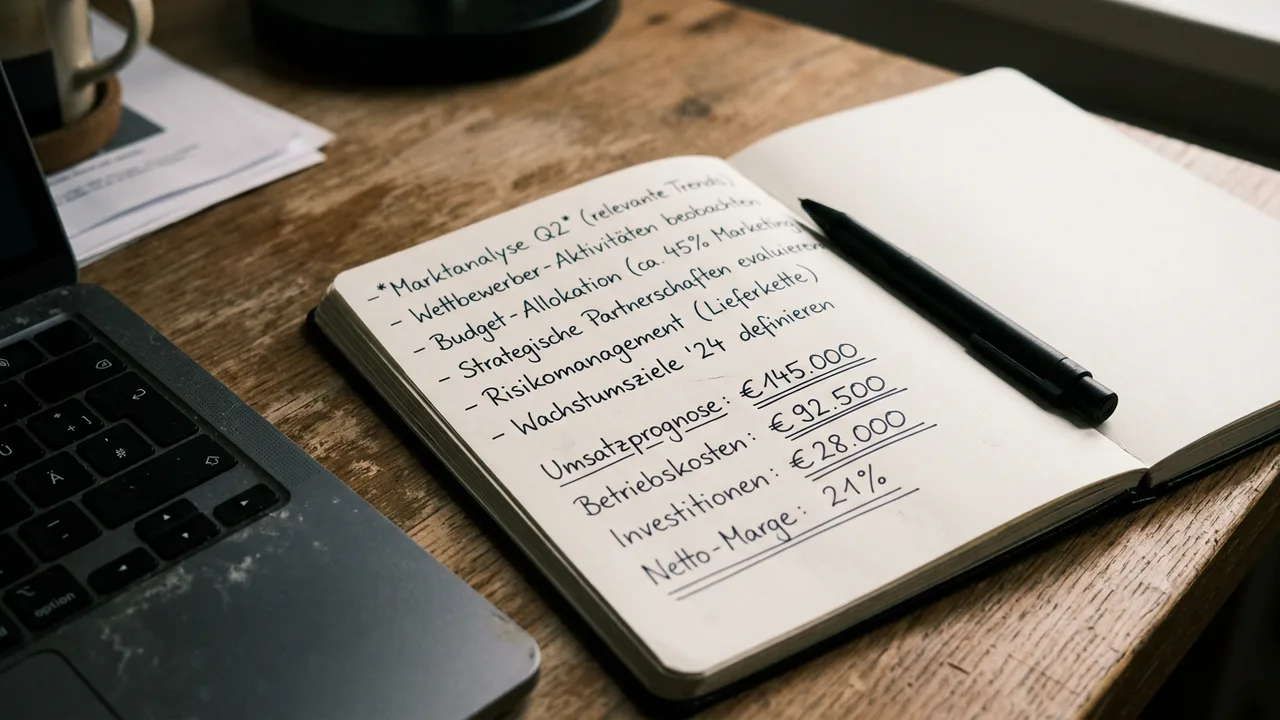 - *Marktanalyse Q2* (relevante Trends)
- Wettbewerber-Aktivitäten beobachten
- Budget-Allokation (ca. 45% Marketing)
- Strategische Partnerschaften evaluieren
- Risikomanagement (Lieferkette)
- Wachstumsziele '24 definieren
Umsatzprognose: €145.000
Betriebskosten: €92.500
Investitionen: €28.000
Netto-Marge: 21%
Ü
+
Ä
#
-
option